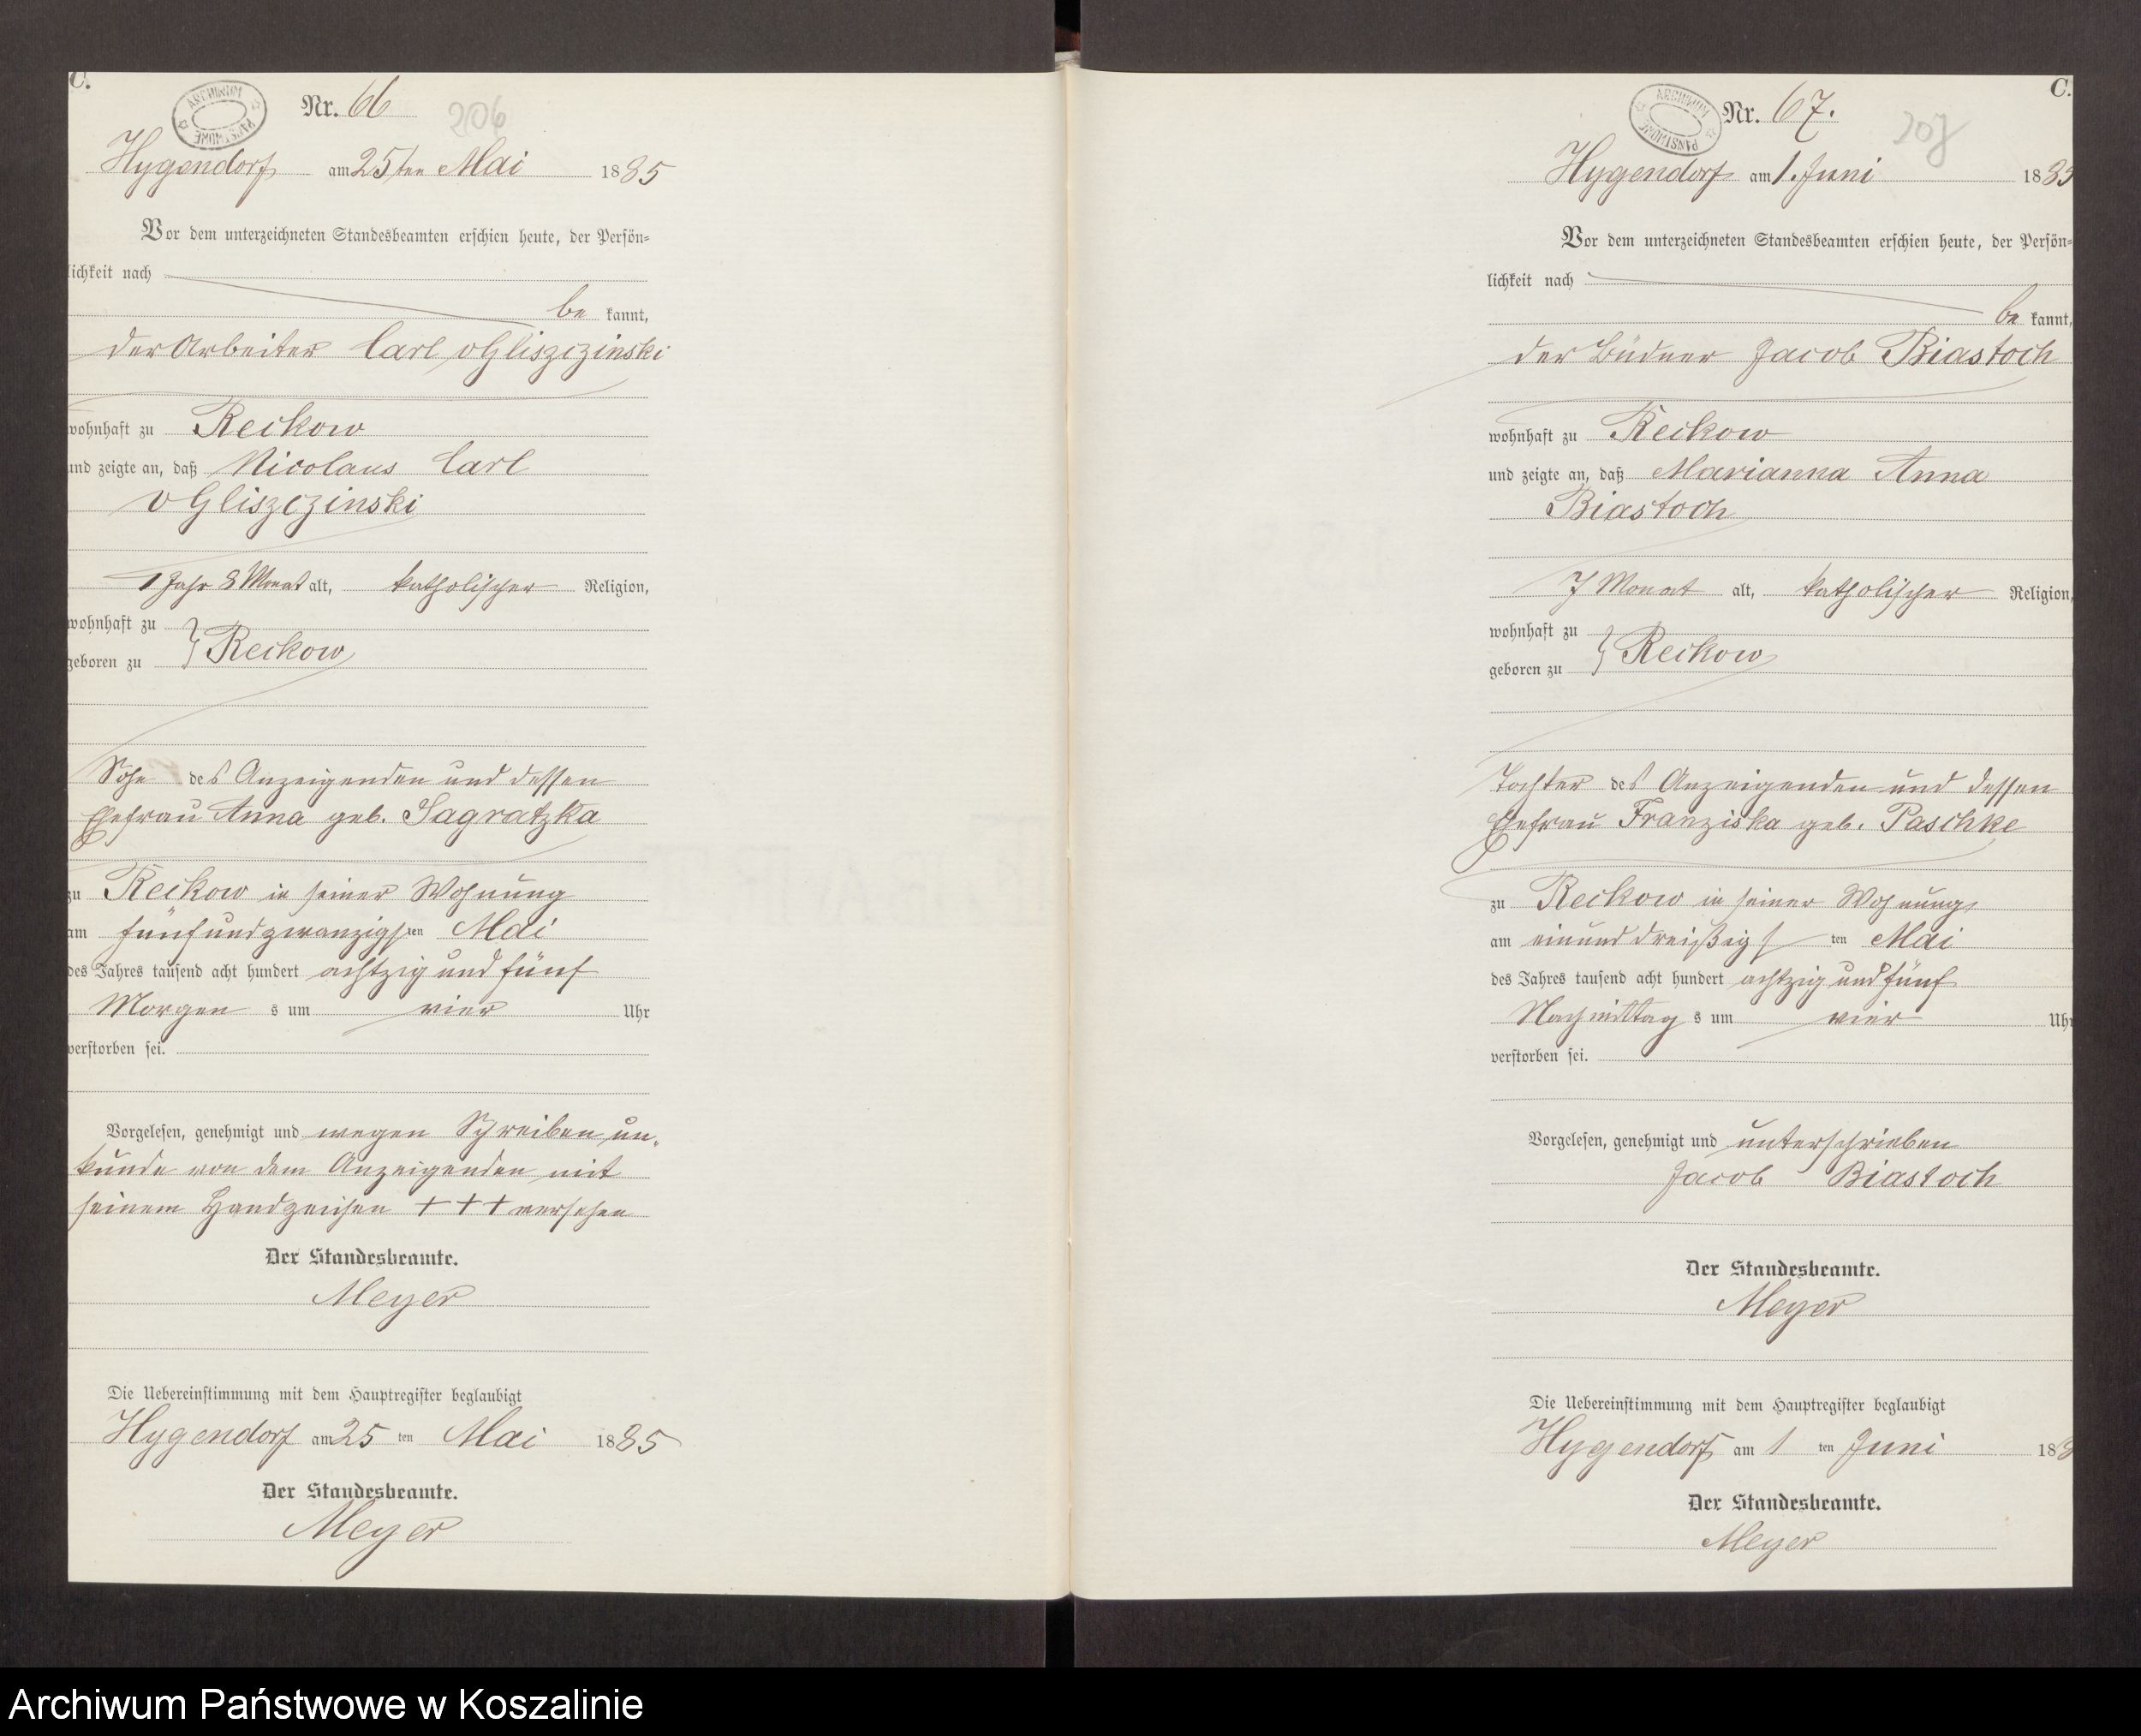 C.
ARCHIWUM PAŃSTWOWE
Nr. 66
206
Hygendorf am 25ten Mai 1885
Vor dem unterzeichneten Standesbeamten erschien heute, der Persön-
lichkeit nach
be kannt,
der Arbeiter Carl v Gliszczinski
wohnhaft zu Reckow
und zeigte an, daß Nicolaus Carl
v Gliszczinski
1 Jahr 8 Monat alt, katholischer Religion,
wohnhaft zu
geboren zu } Reckow
Sohn des Anzeigenden und dessen
Ehefrau Anna geb. Sagratzka
zu Reckow in seiner Wohnung
am fünfundzwanzigsten Mai
des Jahres tausend acht hundert achtzig und fünf
Morgen s um vier Uhr
verstorben sei.
Vorgelesen, genehmigt und wegen Schreiben un-
kunde von dem Anzeigenden mit
seinem Handzeichen + + + versehen
Der Standesbeamte.
Meyer
Die Uebereinstimmung mit dem Hauptregister beglaubigt
Hygendorf am 25 ten Mai 1885
Der Standesbeamte.
Meyer
C.
ARCHIWUM PAŃSTWOWE
Nr. 67.
207
Hygendorf am 1. Juni 1885
Vor dem unterzeichneten Standesbeamten erschien heute, der Persön-
lichkeit nach
be kannt,
der Büdner Jacob Biastoch
wohnhaft zu Reckow
und zeigte an, daß Marianna Anna
Biastoch
7 Monat alt, katholischer Religion,
wohnhaft zu
geboren zu } Reckow
Tochter des Anzeigenden und dessen
Ehefrau Franziska geb. Paschke
zu Reckow in seiner Wohnung
am einunddreißigs ten Mai
des Jahres tausend acht hundert achtzig und fünf
Nachmittag s um vier Uhr
verstorben sei.
Vorgelesen, genehmigt und unterschrieben
Jacob Biastoch
Der Standesbeamte.
Meyer
Die Uebereinstimmung mit dem Hauptregister beglaubigt
Hygendorf am 1 ten Juni 188
Der Standesbeamte.
Meyer
Archiwum Państwowe w Koszalinie